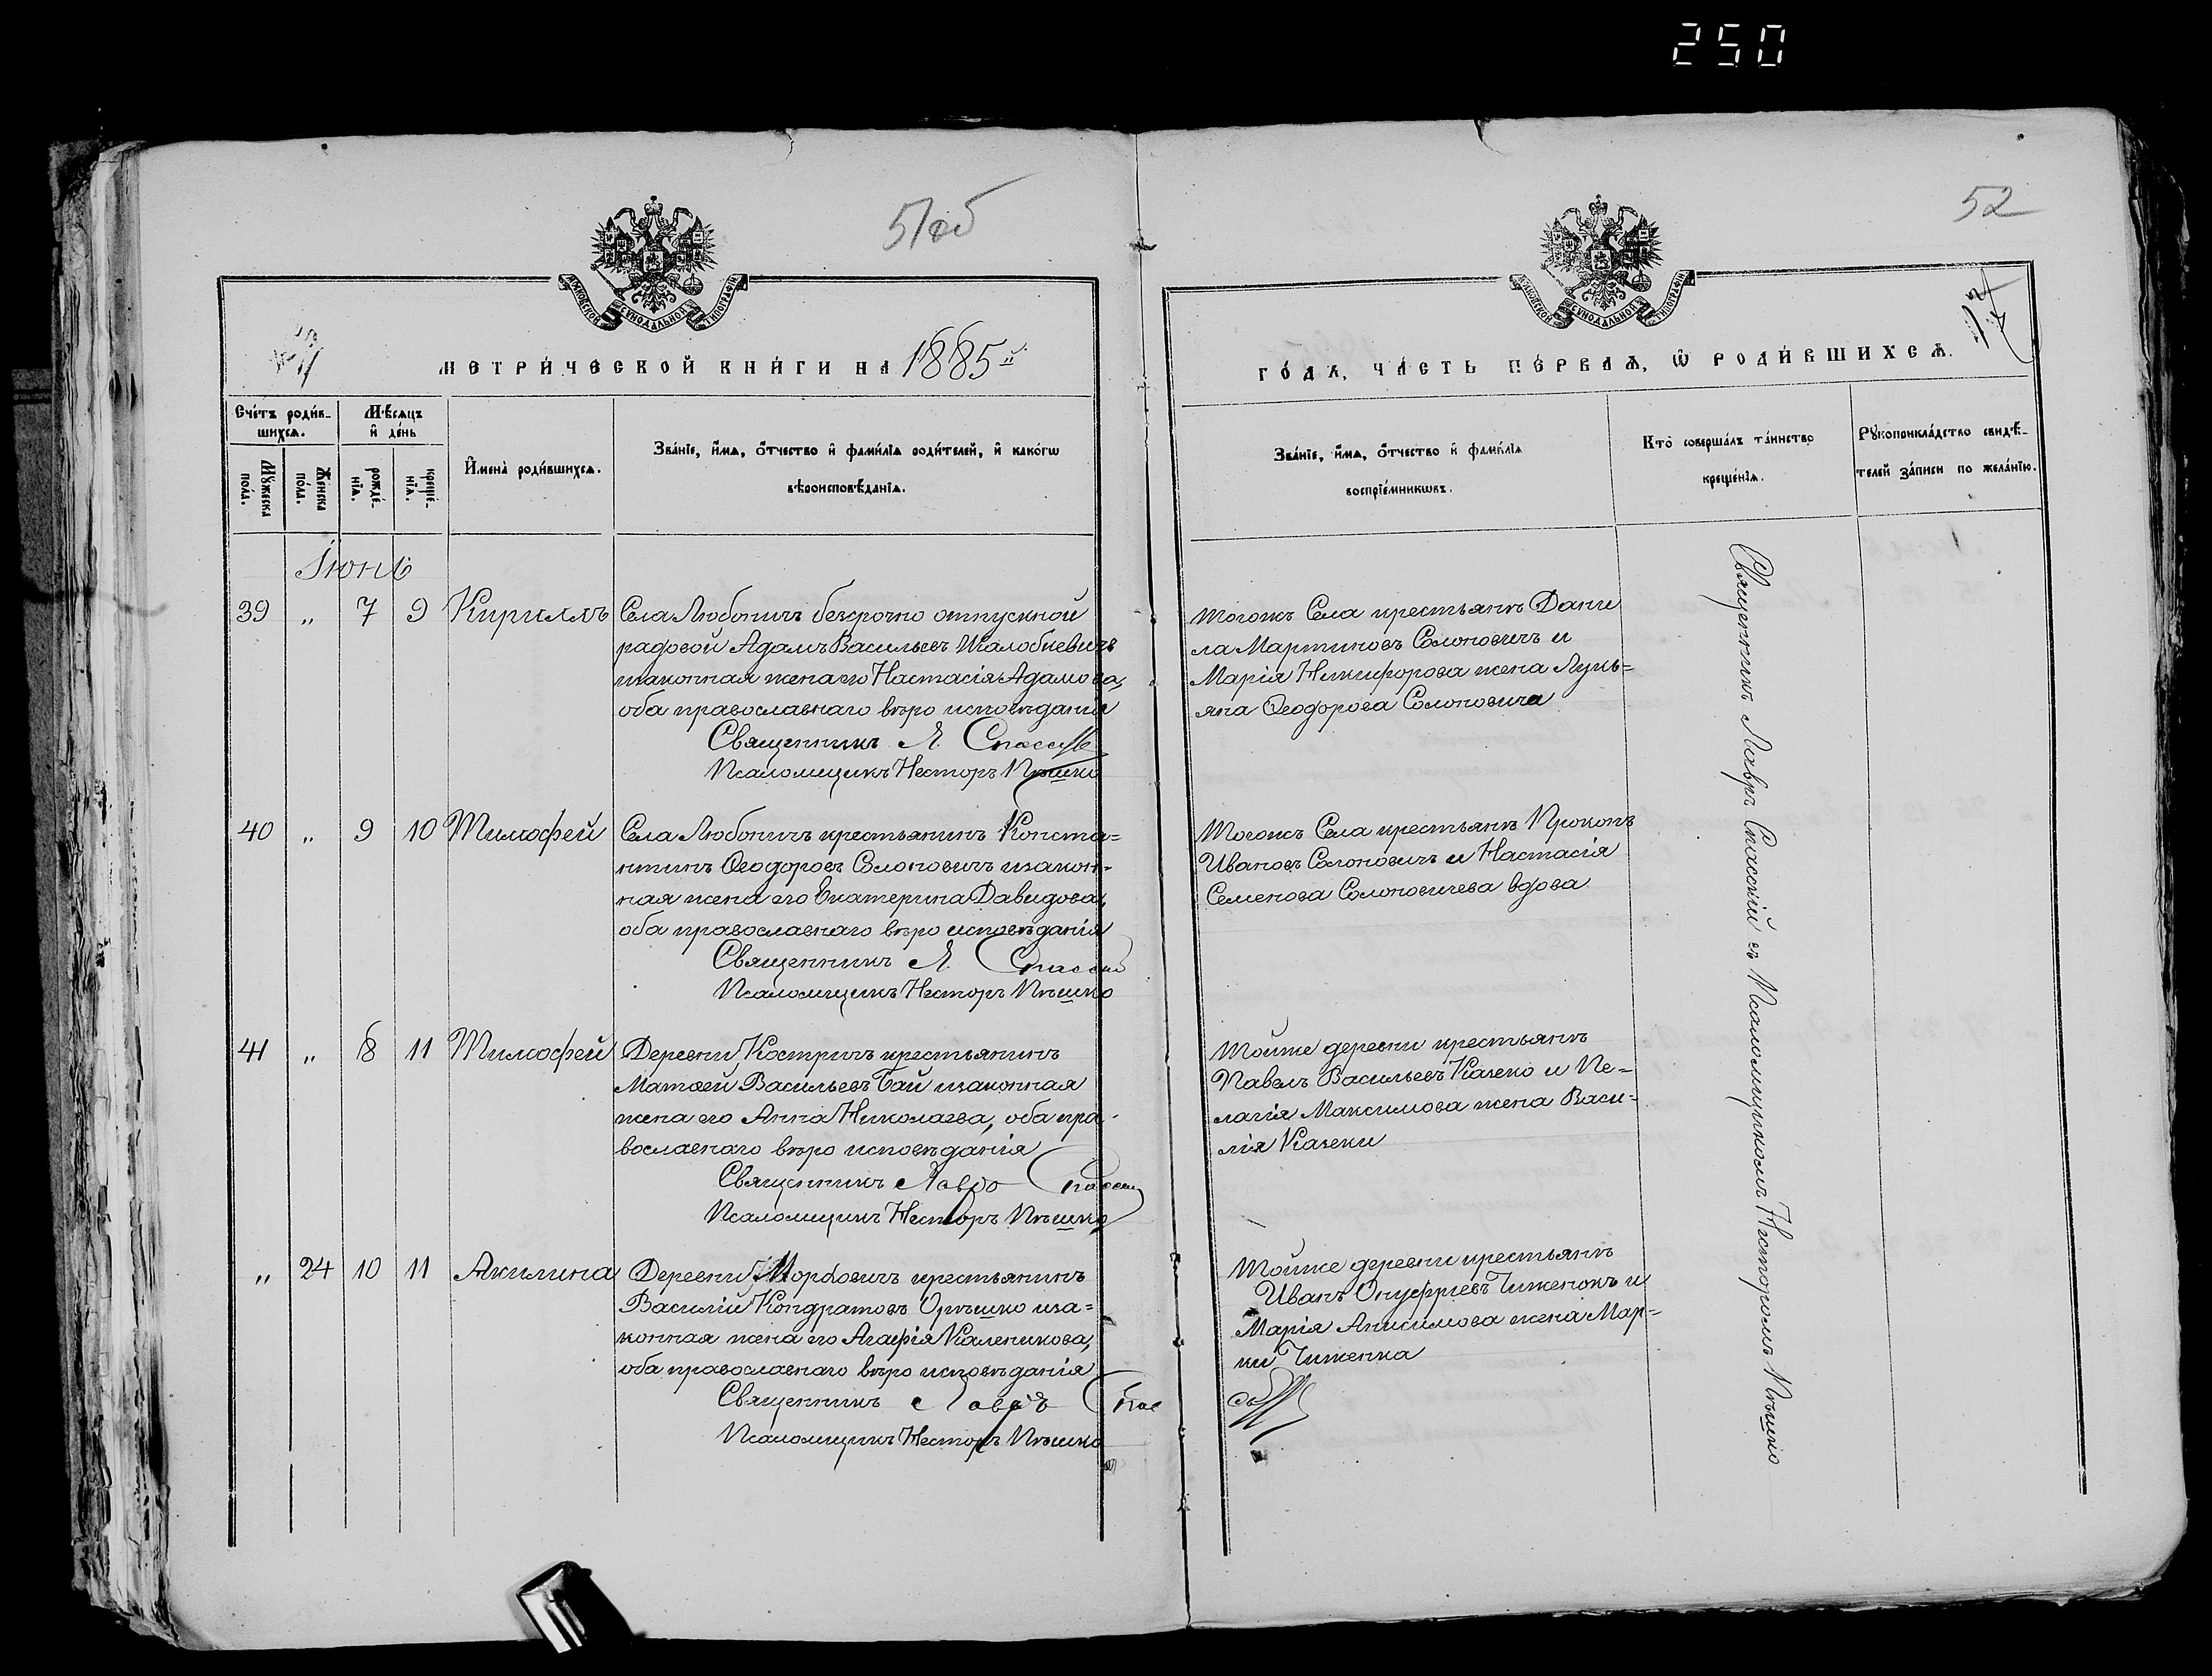 250
51об
52
МОСКОВСКОЙ СѴНОДАЛЬНОЙ ТИПОГРАФІИ
МОСКОВСКОЙ СѴНОДАЛЬНОЙ ТИПОГРАФІИ
МЕТРИ́ЧЕСКОЙ КНИ́ГИ НА 1885 й
ГО́ДА, ЧА́СТЬ ПЕ́РВАѦ, Ѡ҆ РОДИ́ВШИХСѦ.
Сче́тъ роди́в-
шихсѧ.
Мꙋ́жеска
по́ла.
Же́нска
по́ла.
Мѣ́сѧцъ
и҆ де́нь
рожде́-
нїѧ.
креще́-
нїѧ.
И҆мена̀ роди́вшихсѧ.
Зва́нїе, и҆́мѧ, ѻ҆́тчество и҆ фами́лїѧ роди́телей, и҆ како́гѡ
вѣроисповѣ́данїѧ.
Зва́нїе, и҆́мѧ, ѻ҆́тчество и҆ фами́лїѧ
воспрїе́мникѡвъ.
Кто̀ соверша́лъ та́инство
креще́нїѧ.
Рꙋкоприкла́дство свидѣ́-
телей за́писи по жела́нїю.
Іюнь
39 „ 7 9 Кириллъ
Села Любоничъ безсрочно отпускной
рядовой Адамъ Васильевъ Жалобкевичъ
изаконная жена его Настасія Адамова,
оба православнаго вѣро исповѣданія
Священникъ Л. Спасскій
Псаломщикъ Несторъ Пѣшко
Тогожъ Села крестьянъ Дани
ла Мартиновъ Солоновичъ и
Марія Никифорова жена Лукь=
яна Ѳеодорова Солоновича
40 „ 9 10 Тимофей
Села Любоничъ крестьянинъ Конста=
нтинъ Ѳеодоровъ Солоновичъ изакон-
ная жена его Екатерина Давидова,
оба православнаго вѣро исповѣданія
Священникъ Л. Спасскій
Псаломщикъ Несторъ Пѣшко
Тогожъ Села крестьянъ Прокопъ
Ивановъ Солоновичъ и Настасія
Семенова Солоновичева вдова
41 „ 8 11 Тимофей
Деревни Костричъ крестьянинъ
Матѳей Васильевъ Бай изаконная
жена его Анна Николаева, оба пра-
вославнаго вѣро исповѣданія
Священникъ Лавръ Спасскій
Псаломщикъ Несторъ Пѣшко
Тойже деревни крестьянъ
Павелъ Васильевъ Казеко и Пе=
лагія Максимова жена Васи=
лія Казеки
„ 24 10 11 Акилина
Деревни крестьянинъ
Василій Кондратовъ Орѣшко иза=
конная жена его Агафія Каленикова,
оба православнаго вѣро исповѣданія
Священникъ Лавръ Спас
Псаломщикъ Несторъ Пѣшко
Тойже деревни крестьянъ
Иванъ Онуфріевъ Чиженокъ и
Марія Анисимова жена Мар=
ки Чиженка
Священникъ Лавръ Спасскій съ Псаломщикомъ Несторомъ Пѣшко